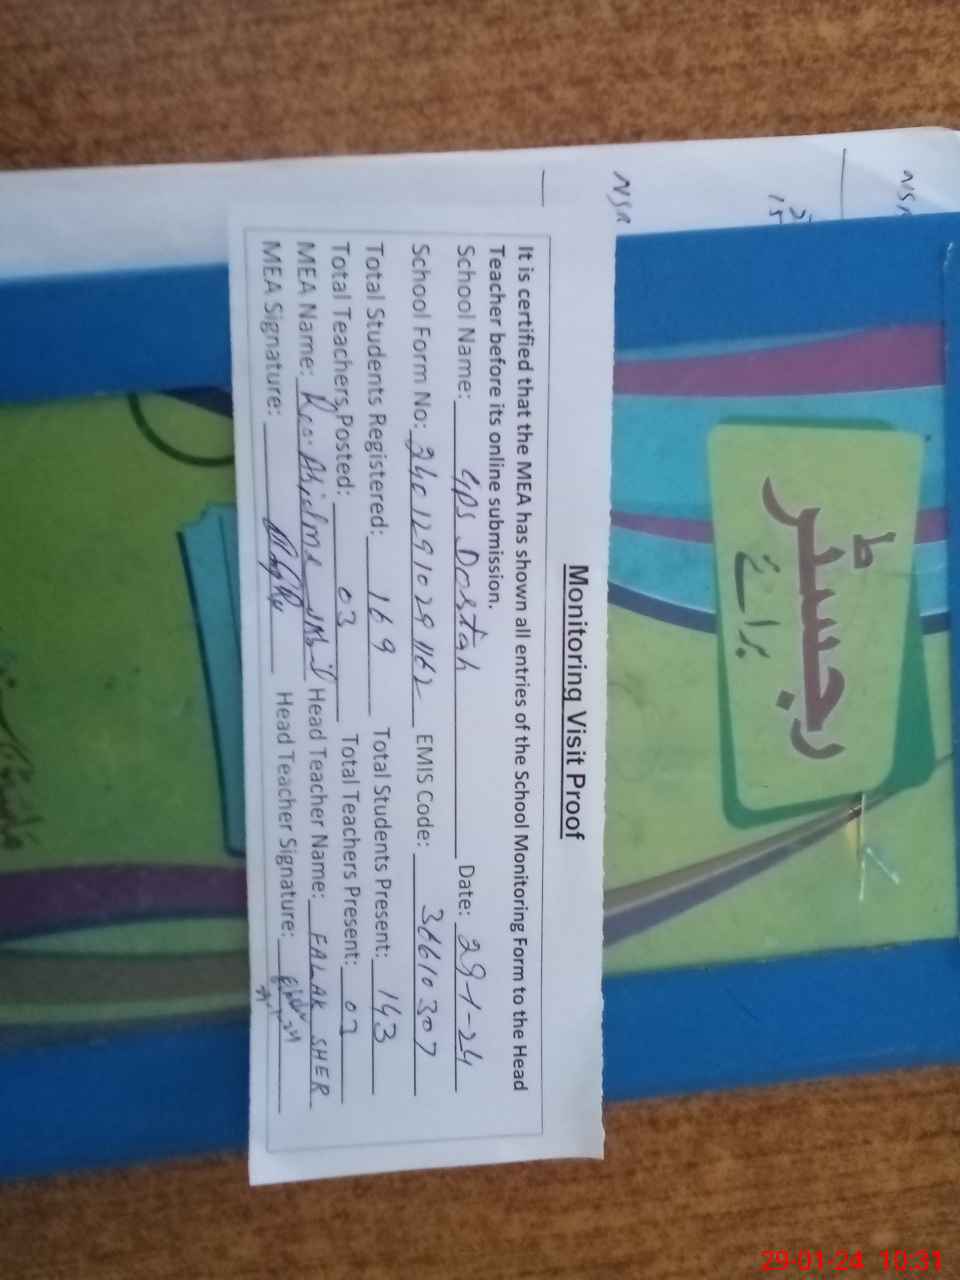 Monitoring Visit Proof
It is certified that the MEA has shown all entries of the School Monitoring Form to the Head
Teacher before its online submission.
School Name: GPS Drstah Date: 29-1-24
School Form No: EMIS Code: 36610307
Total Students Registered: 169 Total Students Present: 143
Total Teachers Posted: 03 Total Teachers Present: 03
MEA Name: Head Teacher Name: FALAK SHER
MEA Signature: Head Teacher Signature:
رجسٹر
برائے
NSR
29-01-24 10:31